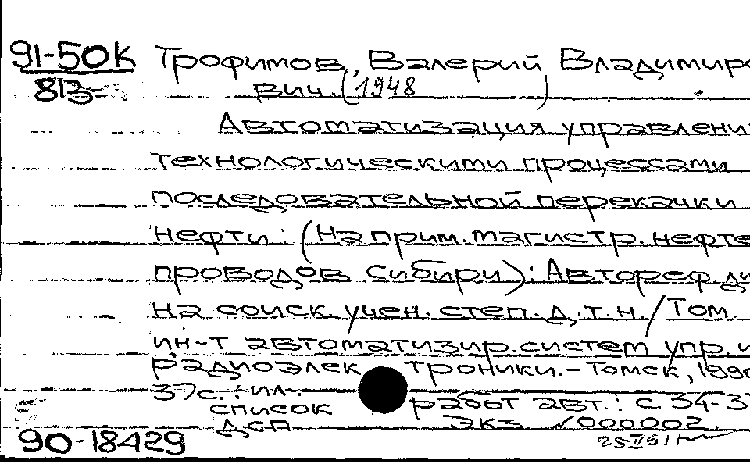 91-50К Трофимов, Валерий Владимиро
813- вич (1948 )
Автоматизация управлени
технологическими процессами
последовательной перекачки
нефти: (На прим. магистр. нефте
проводов Сибири): Автореф. ди
на соиск. учен. степ. д.т.н. / Том.
ин-т автоматизир. систем упр. и
радиоэлек троники. - Томск, 199
37с.: ил.
список работ авт.: с. 34-3
ДСП Экз. √000002
90-18429